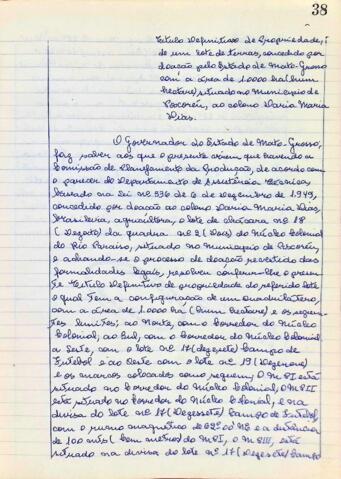 38
Titulo Definitivo de Propriedade,
de um lote de terras, concedido por
doação pelo Estado de Mato-Grosso
com a área de 1.0000 ha (hum
hectare) situado no Municipio de
Poconé, ao colono Maria
Dias.
O Governador do Estado de Mato-Grosso,
faz saber aos que o presente virem que havendo a
Comissão de Planejamento da Produção, de acordo com
o parecer do Departamento de Assistência Técnica,
baseado na Lei nº 336 de 6 de Dezembro de 1949,
concedido por doação ao colono Maria Dias,
brasileira, agricultora, o lote de chácara nº 18
(Dezoito) da quadra nº 2 (Dois) do Núcleo Colonial
do Rio Paraiso, situado no Municipio de
e achando-se o processo de doação revestido das
formalidades legais, resolveu conferir-lhe o presen-
te Titulo Definitivo de propriedade do referido lote
o qual tem a configuração de um quadrilatero,
com a área de 1.0000 ha (hum hectare) e os seguin-
tes limites; ao Norte, com o corredor do Núcleo
Colonial, ao Sul, com o corredor do Núcleo Colonial
a Leste, com o lote nº 17 (dezessete) Campo de
Futebol e ao Oeste com o lote nº 19 (Dezenove)
e os marcos colocados como seguem; O M.P.I está
situado no corredor do Núcleo Colonial, O M.P.II
está situado no corredor do Núcleo Colonial, e na
divisa do lote nº 17 (Dezessete) Campo de Futebol,
com o rumo magnetico de e a distância
de 100 mts (cem metros) do M.P.I, O M.P.III, está
situado na divisa do lote nº 17 (Dezessete) Campo